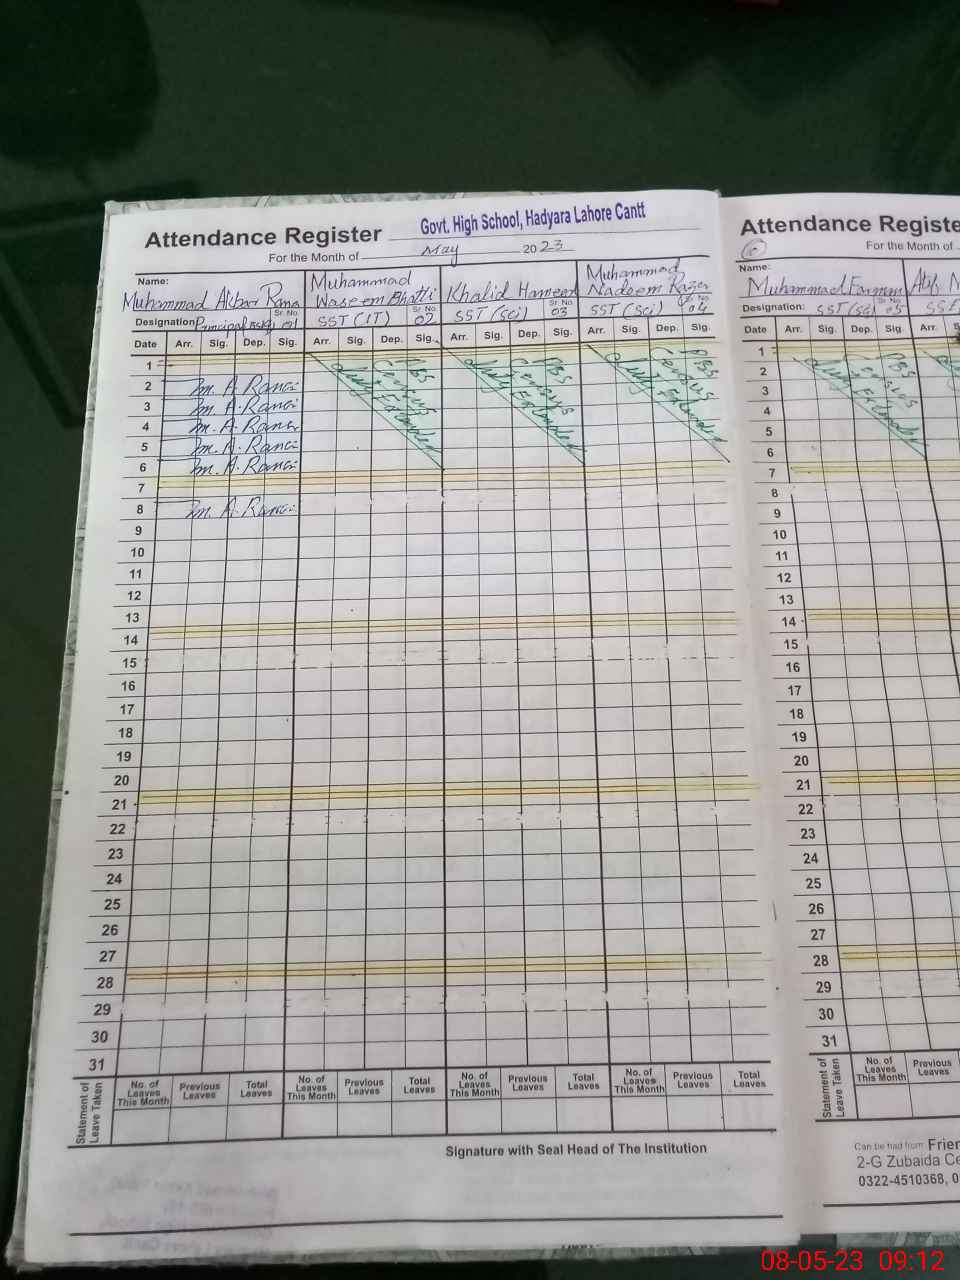 Attendance Register Govt. High School, Hadyara Lahore Cantt
For the Month of May 2023
Name: Muhammad Akbar Rana
Muhammad Waseem Bhatti
Khalid Hameed
Muhammad Nadeem
Designation: Principal Sr No. 01
SST (IT) Sr No. 02
SST (Sci) Sr No. 03
SST (Sci) Sr No. 04
Date Arr. Sig. Dep. Sig. Arr. Sig. Dep. Sig. Arr. Sig. Dep. Sig. Arr. Sig. Dep. Sig.
1
2 M. A. Rana
3 M. A. Rana
4 M. A. Rana
5 M. A. Rana
6 M. A. Rana
7
8 M. A. Rana
9
10
11
12
13
14
15
16
17
18
19
20
21
22
23
24
25
26
27
28
29
30
31
PBS
Census
Duty
PBS
Census
Duty
PBS
Census
Duty
Statement of Leave Taken
No. of Leaves This Month Previous Leaves Total Leaves No. of Leaves This Month Previous Leaves Total Leaves No. of Leaves This Month Previous Leaves Total Leaves No. of Leaves This Month Previous Leaves Total Leaves
Signature with Seal Head of The Institution
Attendance Registe
6
For the Month of
Name:
Muhammad
Designation: SST (SG) Sr No. 05
Date Arr. Sig. Dep. Sig. Arr.
1
2
3
4
5
6
7
8
9
10
11
12
13
14
15
16
17
18
19
20
21
22
23
24
25
26
27
28
29
30
31
PBS
Census
Duty
Statement of Leave Taken
No. of Leaves This Month Previous Leaves
Can be had from Frien
2-G Zubaida Ce
0322-4510368, 0
08-05-23 09:12